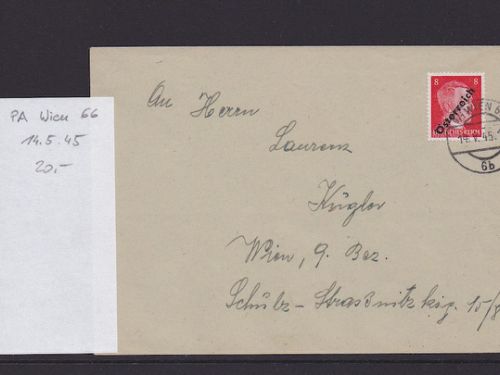 PA Wien 66
14.5.45
20,-
An Herrn
Laurenz
Kügler
Wien, 9. Bez.
Schulz-Straßnitzkig. 15/8
8 8
Österreich
DEUTSCHES REICH
14.V.45
6b